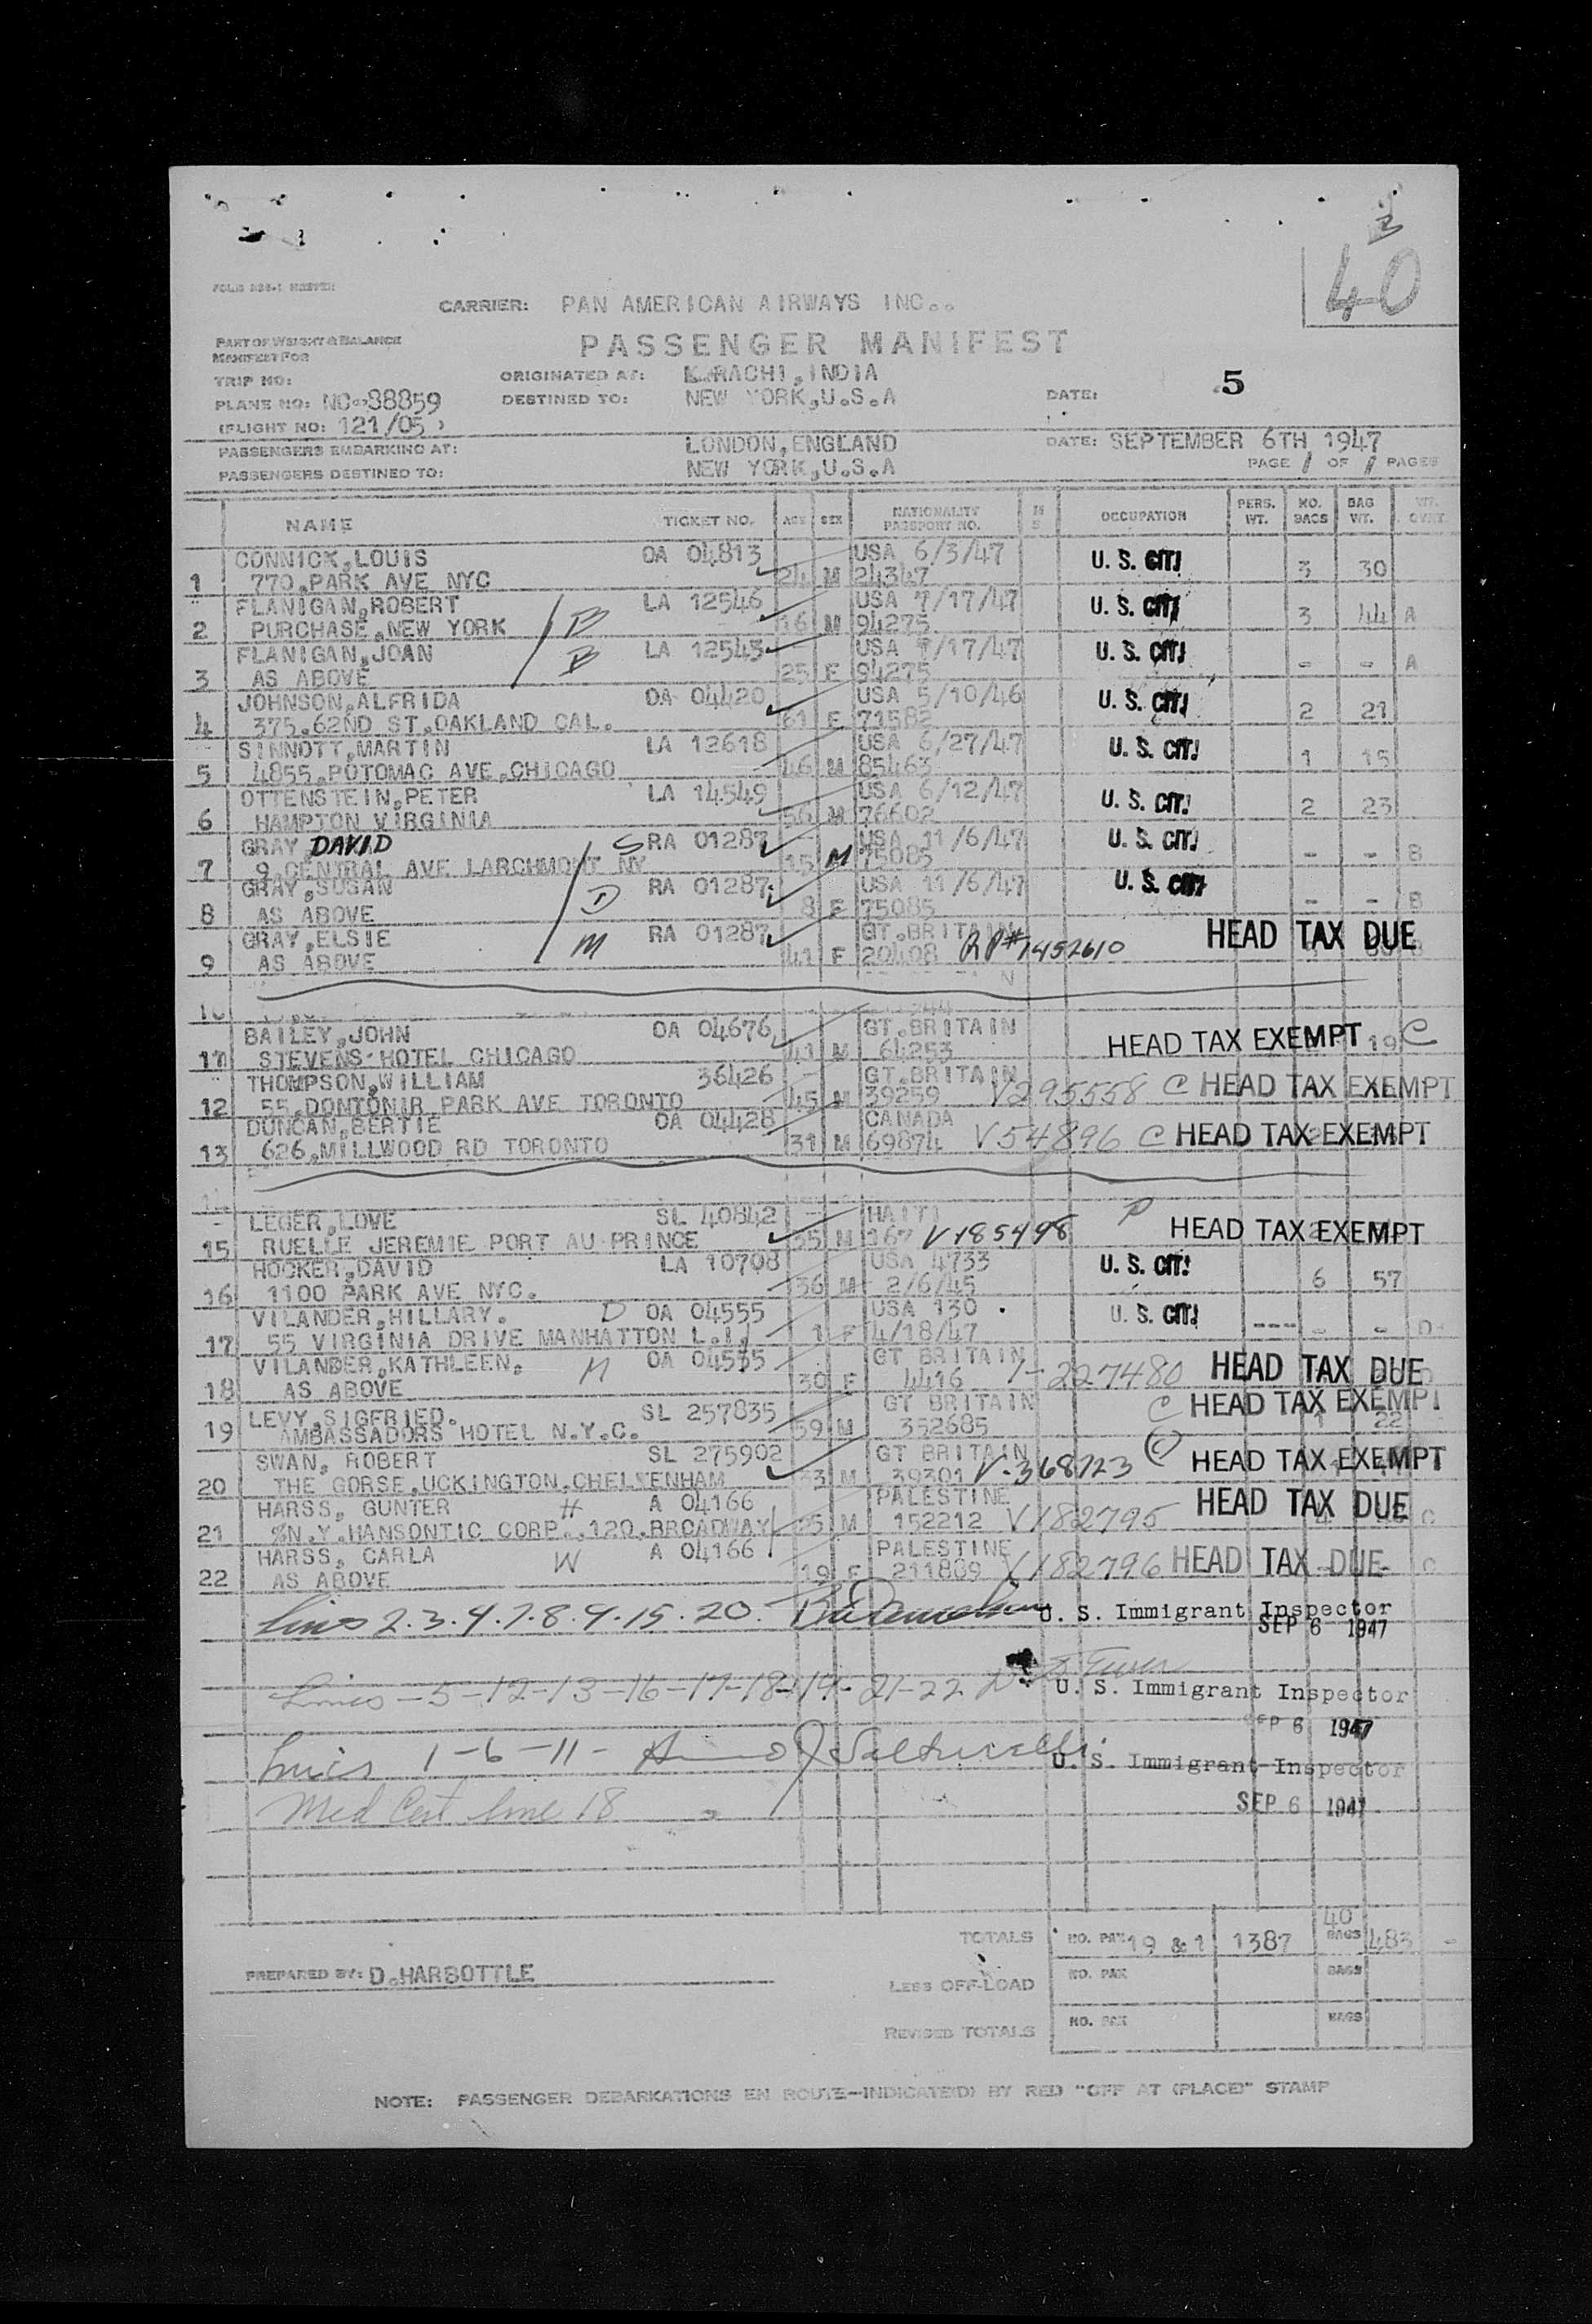 40
CARRIER: PAN AMERICAN AIRWAYS INC..
PASSENGER MANIFEST
PART OF WEIGHT & BALANCE
MANIFEST FOR
TRIP NO:
ORIGINATED AT: KARACHI, INDIA
PLANE NO: NC-88859
DESTINED TO: NEW YORK,U.S.A
DATE: 5
(FLIGHT NO: 121/05 )
PASSENGERS EMBARKING AT: LONDON,ENGLAND
DATE: SEPTEMBER 6TH 1947
PASSENGERS DESTINED TO: NEW YORK,U.S.A
PAGE 1 OF 1 PAGES
NAME TICKET NO. AGE SEX NATIONALITY PASSPORT NO. OCCUPATION PERS. WT. NO. BAGS BAG WT.
CONNICK,LOUIS OA 04813 USA 6/3/47 U. S. CIT.
1 770,PARK AVE NYC 24 M 24347 3 30
FLANIGAN,ROBERT B LA 12546 USA 7/17/47 U. S. CIT.
2 PURCHASE,NEW YORK M 94275 3 44 A
FLANIGAN,JOAN B LA 12543 USA 7/17/47 U. S. CIT.
3 AS ABOVE 25 F 94275 - - A
JOHNSON,ALFRIDA OA 04420 USA 5/10/46 U. S. CIT.
4 375,62ND ST,OAKLAND CAL. 61 F 71582 2 21
SINNOTT,MARTIN LA 12618 USA 6/27/47 U. S. CIT.
5 4855,POTOMAC AVE,CHICAGO 46 M 85463 1 15
OTTENSTEIN,PETER LA 14549 USA 6/12/47 U. S. CIT.
6 HAMPTON VIRGINIA 56 M 76602 2 23
GRAY,DAVID S RA 01287 USA 11/6/47 U. S. CIT.
7 9,CENTRAL AVE LARCHMONT NY 15 M 75085 - - B
GRAY,SUSAN D RA 01287 USA 11/6/47 U. S. CIT.
8 AS ABOVE 8 F 75085 - - B
GRAY,ELSIE M RA 01287 GT.BRITAIN HEAD TAX DUE
9 AS ABOVE 41 F 20408 RP#1452610
10
BAILEY,JOHN OA 04676 GT.BRITAIN
11 STEVENS HOTEL CHICAGO 41 M 64253 HEAD TAX EXEMPT 19 C
THOMPSON,WILLIAM 36426 GT.BRITAIN
12 55,DONTONIR PARK AVE TORONTO 45 M 39259 V295558 C HEAD TAX EXEMPT
DUNCAN,BERTIE OA 04428 CANADA
13 626,MILLWOOD RD TORONTO 31 M 69874 V54896 C HEAD TAX EXEMPT
LEGER,LOVE SL 40842 HAITI P
15 RUELLE JEREMIE PORT AU PRINCE 35 M 167 V185498 HEAD TAX EXEMPT
HOOKER,DAVID LA 10708 USA 4733 U. S. CIT.
16 1100 PARK AVE NYC. 36 M 2/6/45 6 57
VILANDER,HILLARY. D OA 04555 USA 130 U. S. CIT.
17 55 VIRGINIA DRIVE MANHATTON L.I. 1 F 4/18/47 --- - - D
VILANDER,KATHLEEN. M OA 04555 GT BRITAIN
18 AS ABOVE 30 F 4416 1-227480 HEAD TAX DUE
LEVY,SIGFRIED. SL 257835 GT BRITAIN C HEAD TAX EXEMPT
19 AMBASSADORS HOTEL N.Y.C. 59 M 352685 22
SWAN, ROBERT SL 275902 GT BRITAIN C HEAD TAX EXEMPT
20 THE GORSE,UCKINGTON,CHELTENHAM 33 M 39301 V-368723
HARSS, GUNTER H A 04166 PALESTINE HEAD TAX DUE
21 %N.Y.HANSONTIC CORP.,120,BROADWAY 25 M 152212 V182795 C
HARSS, CARLA W A 04166 PALESTINE
22 AS ABOVE 19 F 211809 V182796 HEAD TAX DUE C
Lines 2.3.4.7.8.9.15.20. U. S. Immigrant Inspector
SEP 6 1947
Lines -5-12-13-16-17-18-19-21-22
U. S. Immigrant Inspector
SEP 6 1947
Lines 1-6-11-
U. S. Immigrant Inspector
Med Cert line 18
SEP 6 1947
TOTALS NO. PAX 19 & 1 1387 40 BAGS 483 -
PREPARED BY: D.HARBOTTLE
LESS OFF-LOAD NO. PAX BAGS
REVISED TOTALS NO. PAX BAGS
NOTE: PASSENGER DEBARKATIONS EN ROUTE-INDICATE(D) BY RED "OFF AT (PLACE)" STAMP